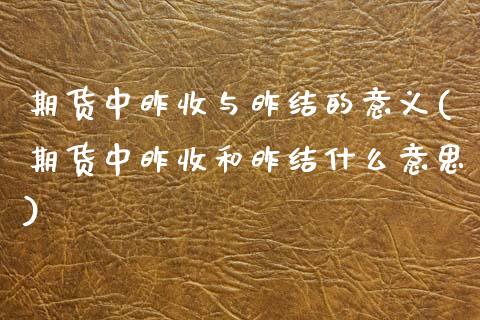 期货中昨收与昨结的意义(
期货中昨收和昨结什么意思
)